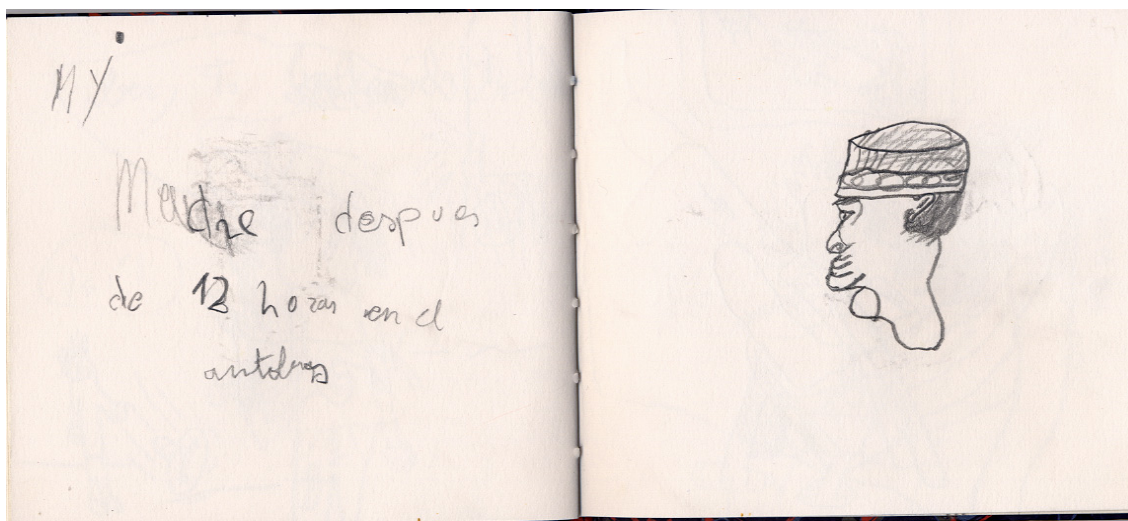 MY
Madre despues
de 12 horas en el
autobus